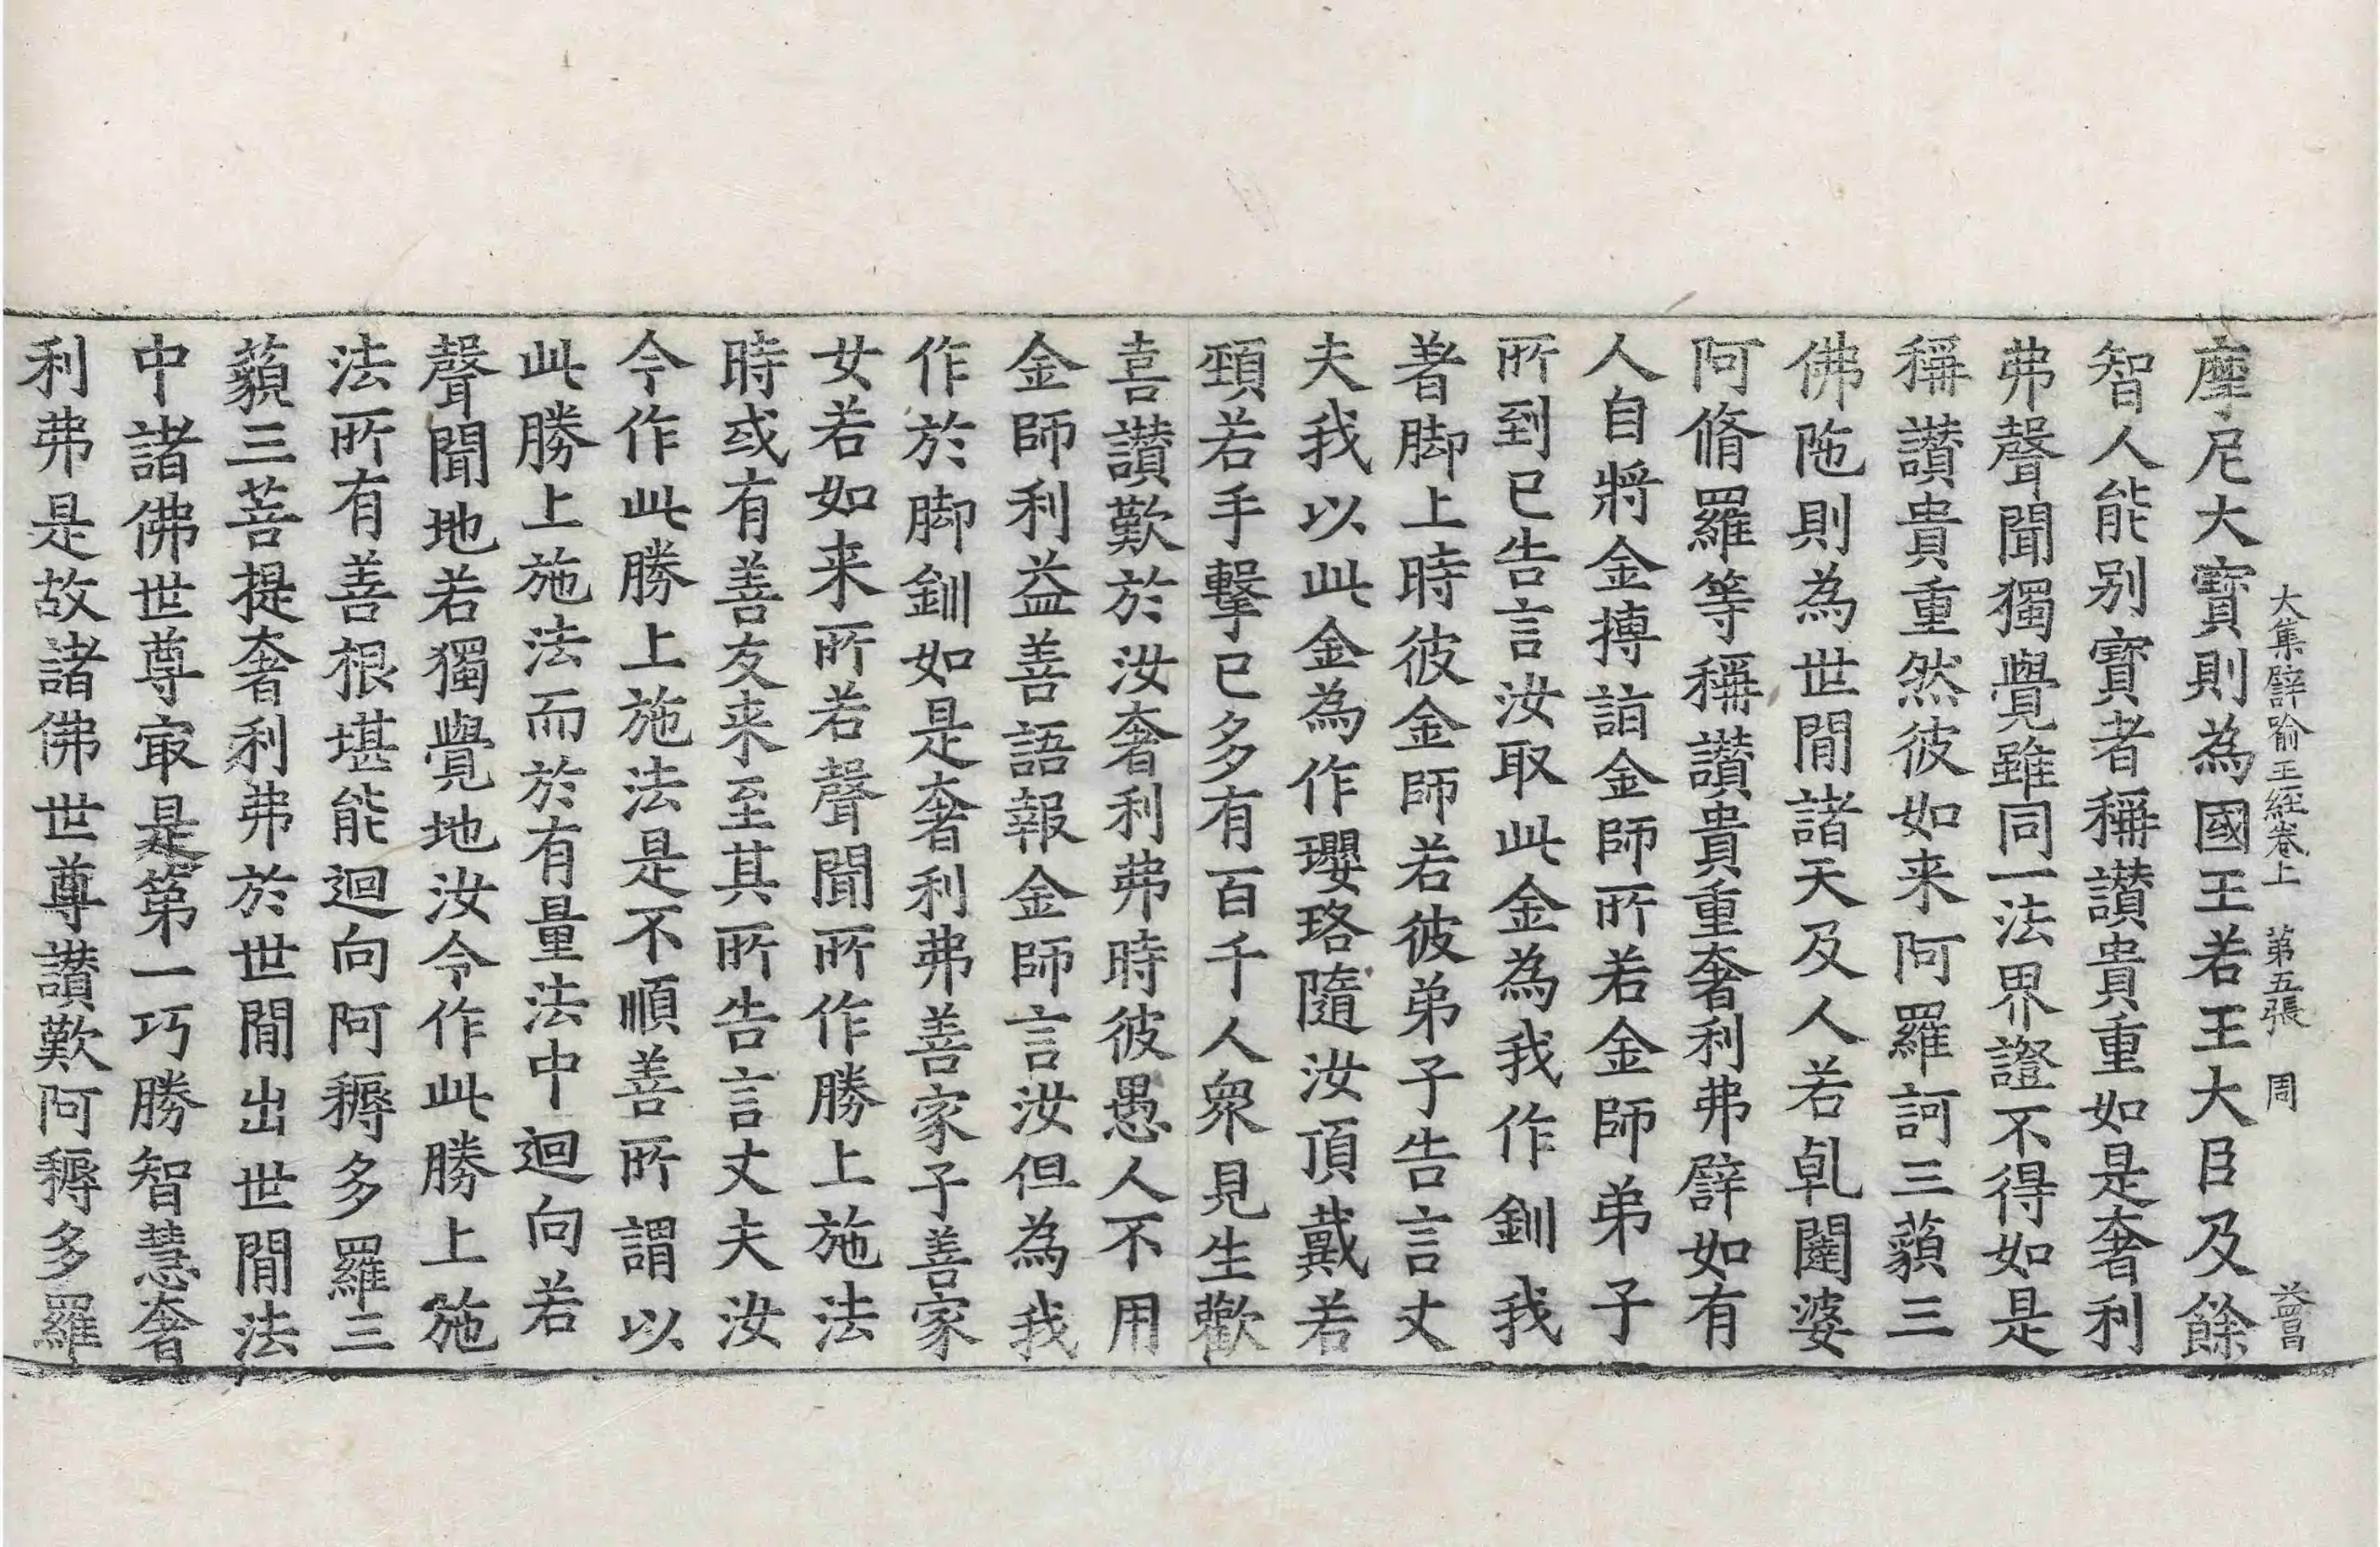 大集譬喻王經卷上 第五張 周 益曾
摩尼大寶則為國王若王大臣及餘
智人能別寶者稱讃貴重如是奢利
弗聲聞獨覺雖同一法界證不得如是
稱讃貴重然彼如来阿羅訶三藐三
佛陁則為世閒諸天及人若乹闥婆
阿脩羅等稱讃貴重奢利弗譬如有
人自將金摶詣金師所若金師弟子
所到已告言汝取此金為我作釧我
著脚上時彼金師若彼弟子告言丈
夫我以此金為作瓔珞隨汝頂戴若
頸若手擊已多有百千人衆見生歡
喜讃歎於汝奢利弗時彼愚人不用
金師利益善語報金師言汝但為我
作於脚釧如是奢利弗善家子善家
女若如来所若聲聞所作勝上施法
時或有善友来至其所告言丈夫汝
今作此勝上施法是不順善所謂以
此勝上施法而於有量法中迴向若
聲聞地若獨覺地汝今作此勝上施
法所有善根堪能迴向阿耨多羅三
藐三菩提奢利弗於世閒出世閒法
中諸佛世尊㝡是第一巧勝智慧奢
利弗是故諸佛世尊讃歎阿耨多羅